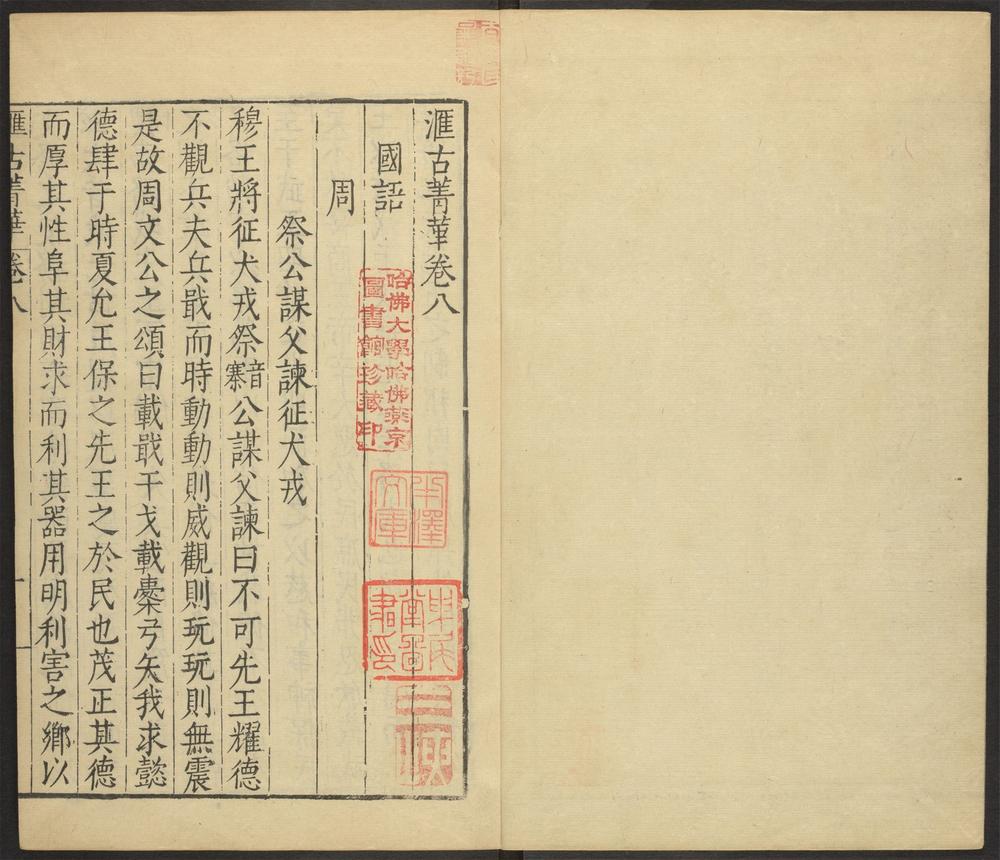 滙古菁華卷八
國語
周
祭公謀父諫征犬戎
穆王將征犬戎祭音寨公謀父諫曰不可先王耀德
不觀兵夫兵戢而時動動則威觀則玩玩則無震
是故周文公之頌曰載戢干戈載櫜弓矢我求懿
德肆于時夏允王保之先王之於民也茂正其德
而厚其性阜其財求而利其器用明利害之鄉以
滙古菁華 卷八 一
哈佛大學哈佛燕京
圖書館珍藏印